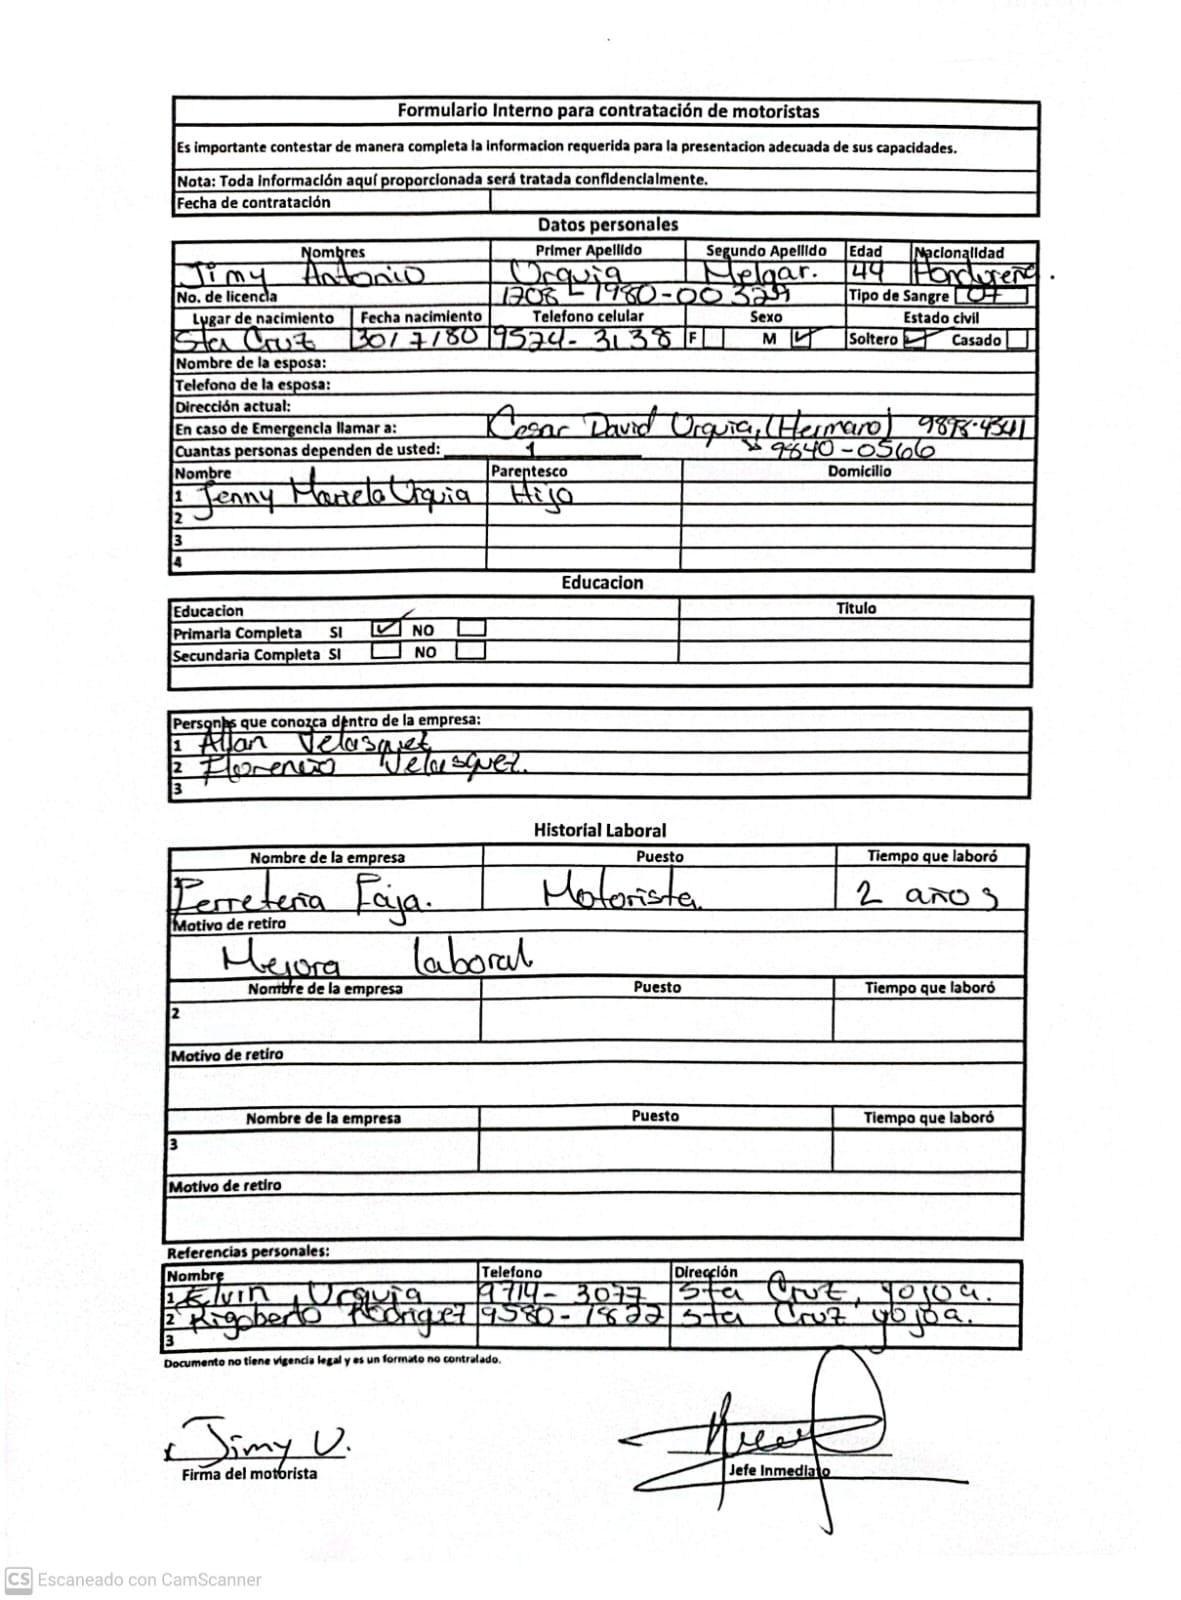 Formulario Interno para contratación de motoristas
Es importante contestar de manera completa la informacion requerida para la presentacion adecuada de sus capacidades.
Nota: Toda información aquí proporcionada será tratada confidencialmente.
Fecha de contratación
Datos personales
Nombres Primer Apellido Segundo Apellido Edad Nacionalidad
Jimy Antonio Urquia Melgar. 44 Hondureña.
No. de licencia 1708-1980-00329 Tipo de Sangre O+
Lugar de nacimiento Fecha nacimiento Telefono celular Sexo Estado civil
Sta Cruz 30/7/80 9524-3138 F M Soltero Casado
Nombre de la esposa:
Telefono de la esposa:
Dirección actual:
En caso de Emergencia llamar a: Cesar David Urquia, (Hermano) 9878-4341
Cuantas personas dependen de usted: 1 9840-0566
Nombre Parentesco Domicilio
1 Jenny Mariela Urquia Hijo
2
3
4
Educacion
Educacion Titulo
Primaria Completa SI NO
Secundaria Completa SI NO
Personas que conozca dentro de la empresa:
1 Allan Velasquez
2 Florencio Velasquez.
3
Historial Laboral
Nombre de la empresa Puesto Tiempo que laboró
1 Ferreteria Faja. Motorista. 2 años
Motivo de retiro
Mejora laboral
Nombre de la empresa Puesto Tiempo que laboró
2
Motivo de retiro
Nombre de la empresa Puesto Tiempo que laboró
3
Motivo de retiro
Referencias personales:
Nombre Telefono Dirección
1 Elvin Urquia 9714-3077 Sta Cruz, yojoa.
2 Rigoberto Rodriguez 9580-1822 Sta Cruz yojoa.
3
Documento no tiene vigencia legal y es un formato no contralado.
x Jimy U.
Firma del motorista Jefe Inmediato
CS Escaneado con CamScanner